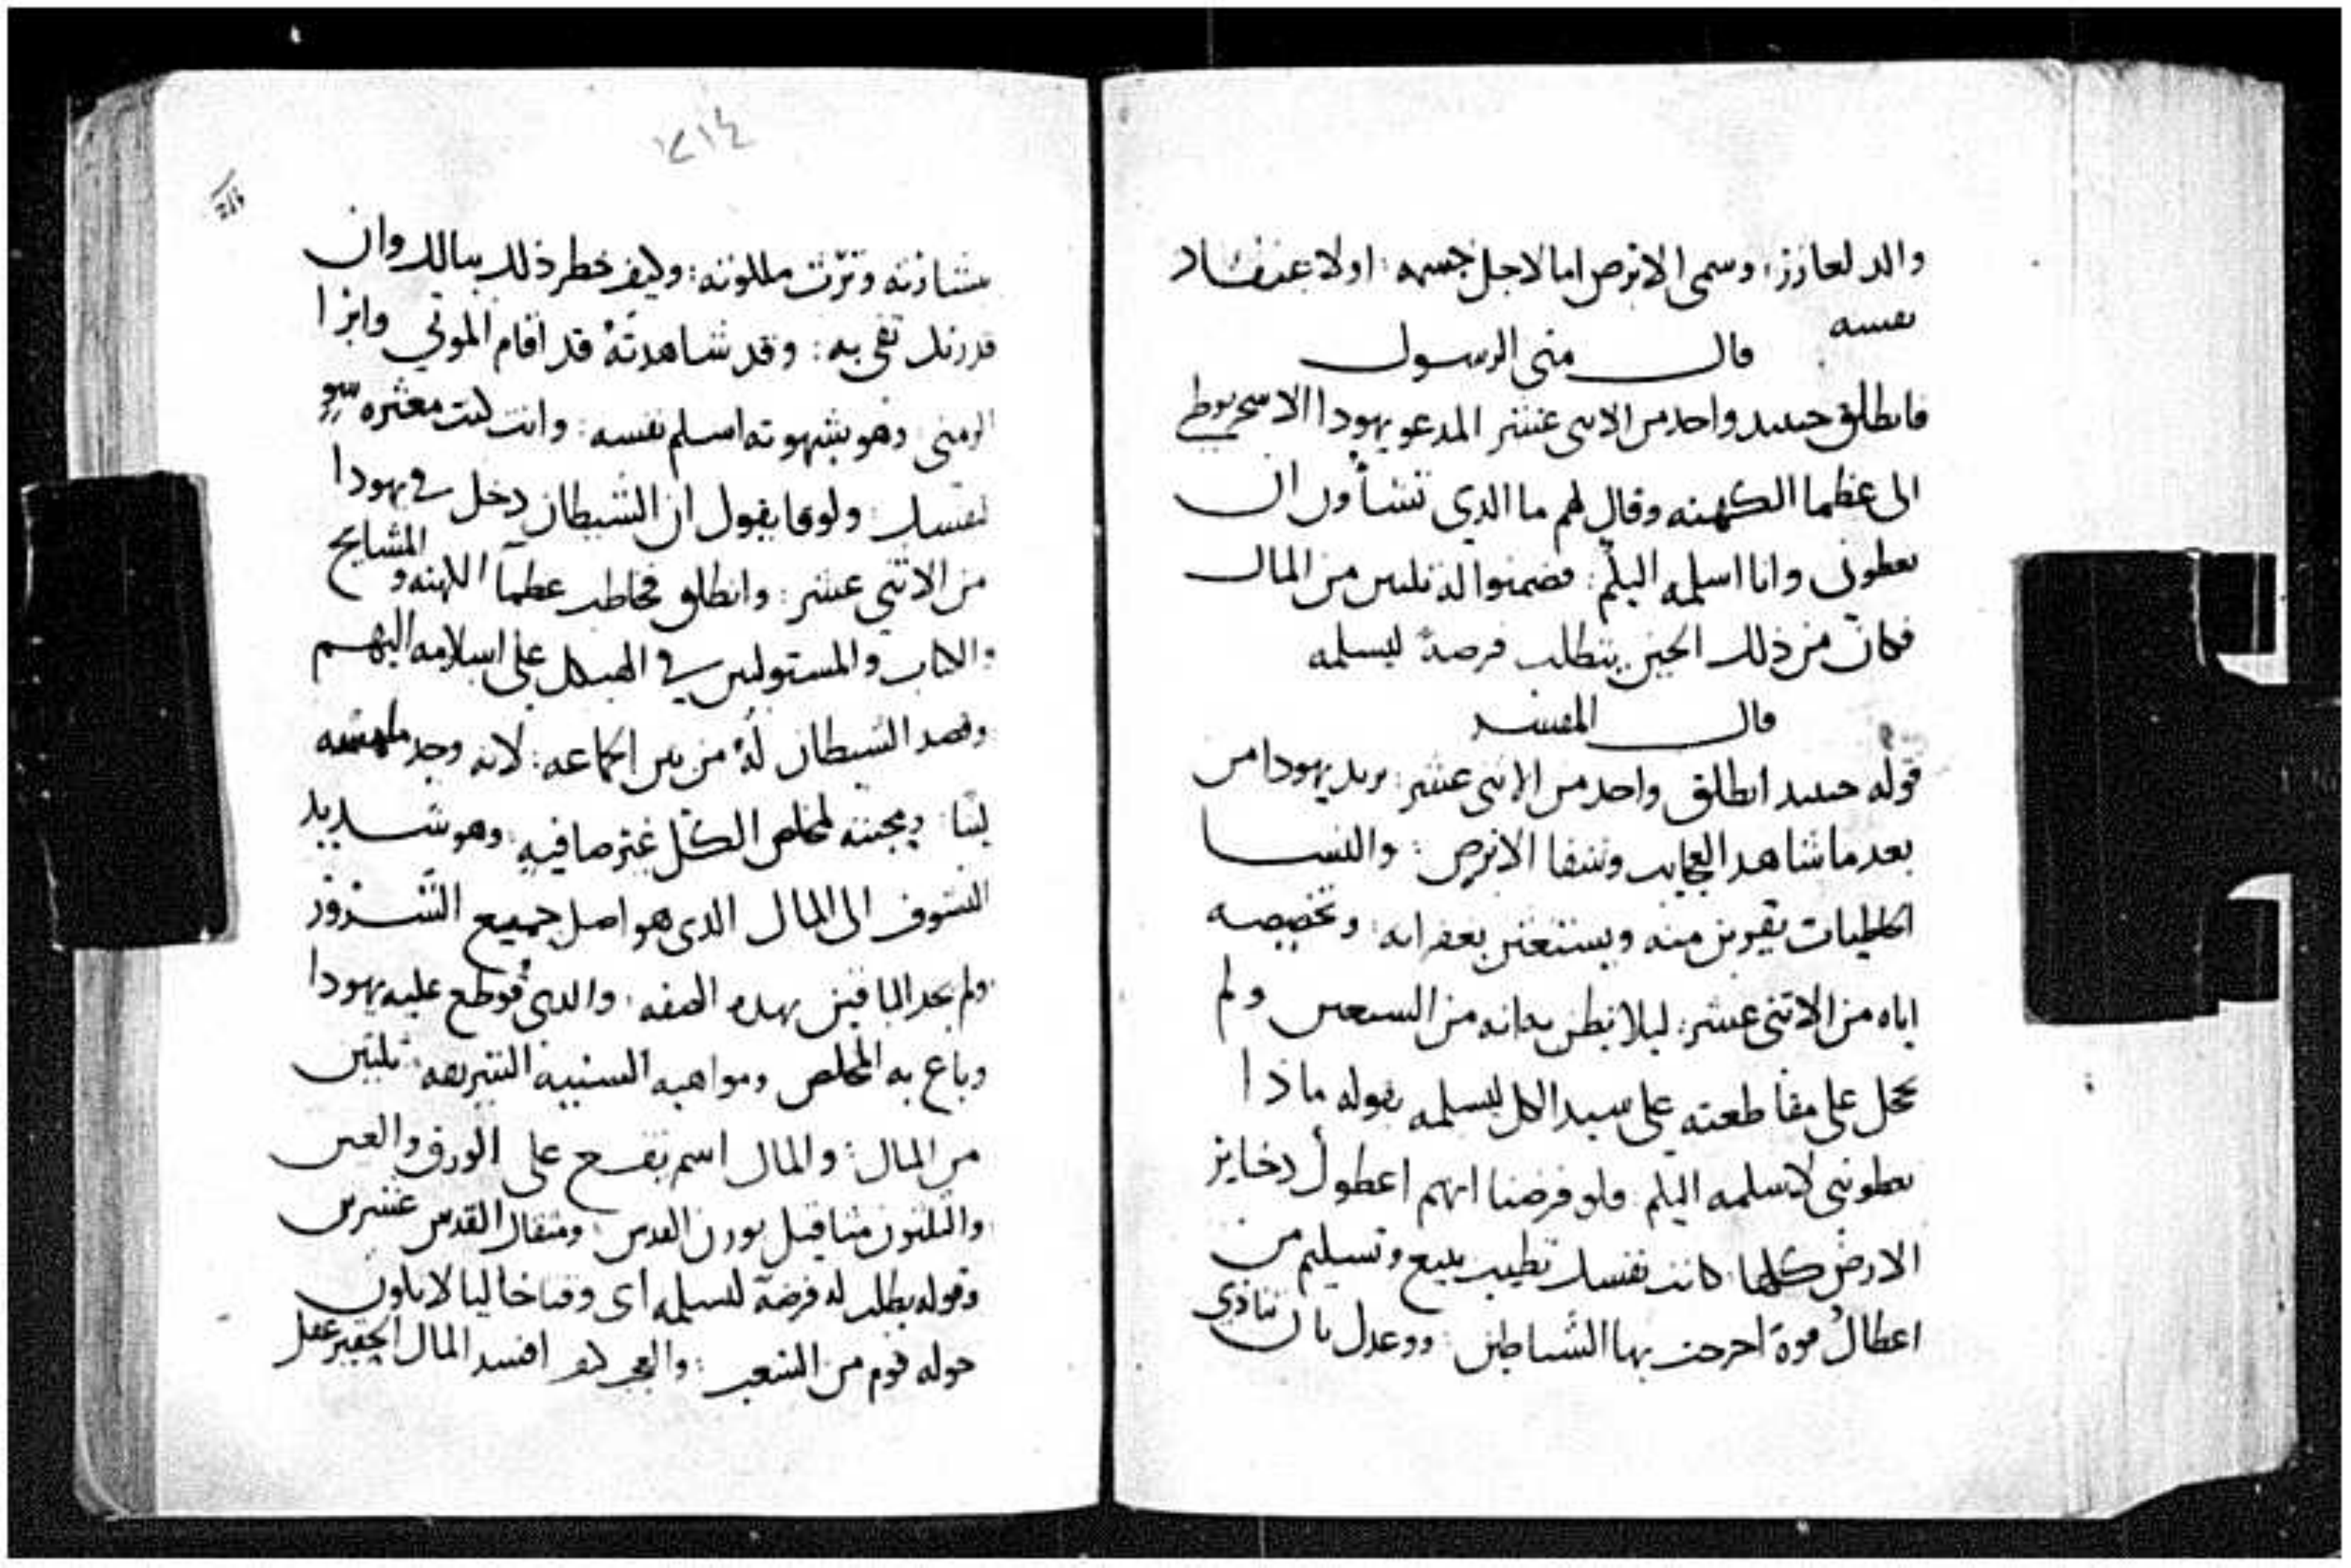 والد لعازر: وسمي الابرص اما لاجل جسمه: او لاعتقاد
نفسه
قال متى الرسول
فانطلق حينيد واحد من الاثنى عشر المدعو يهودا الاسخريوطي
الى عظما الكهنه وقال لهم ما الذي تشأون ان
تعطوني وانا اسلمه اليكم: فضمنوا له ثلثين من المال
فكان من ذلك الحين يتطلب فرصة ليسلمه
قال المفسر
قوله حينيد انطلق واحد من الاثنى عشر: يريد يهودا من
بعد ما شاهد العجايب وشفا الابرص: والنسا
الخاطيات يقربن منه ويستمتعن بغفرانه: وتخصيصه
اياه من الاثنى عشر: ليلا يظن بانه من السبعين ولم
يخجل على مقاطعته على سيد الكل ليسلمه بقوله ماذا
تعطوني لاسلمه اليكم فلو فرضنا انهم اعطوك دخاير
الارض كلها كانت نفسك تطيب ببيع وتسليم من
اعطاك قوة اخرجت بها الشياطين: ووعدك بان
تنادي
١٢١٤
بشارته وترث ملكوته: وكيف خطر ذلك ببالك وان
قدرتك تفي به: وقد شاهدته قد اقام الموتى وابرا
الزمنى وهو بشهوته اسلم نفسه: وانت كنت معثره
لنفسك: ولوقا يقول ان الشيطان دخل في يهودا
من الاثني عشر: وانطلق فخاطب عظما الكهنه والمشايخ
والكتاب والمستولين في الهيكل على اسلامه اليهم
وقصد الشيطان له من بين الجماعه: لانه وجد
لينا ومحبته لمخلص الكل غير صافيه: وهو شديد
التشوف الى المال الذي هو اصل جميع الشرور
ولم يجد الباقين بهده الصفه: والدي قوطع عليه يهودا
وباع به المخلص ومواهبه السنيه الشريفه: ثلثين
من المال: والمال اسم يقع على الورق والعين
والثلثون مثاقيل بوزن القدس: ومثقال القدس عشرين
وقوله يطلب له فرصة ليسلمه اي وقتا خاليا لا يكون
حوله قوم من الشعب: والعجب كيف افسد المال الحقير عقل